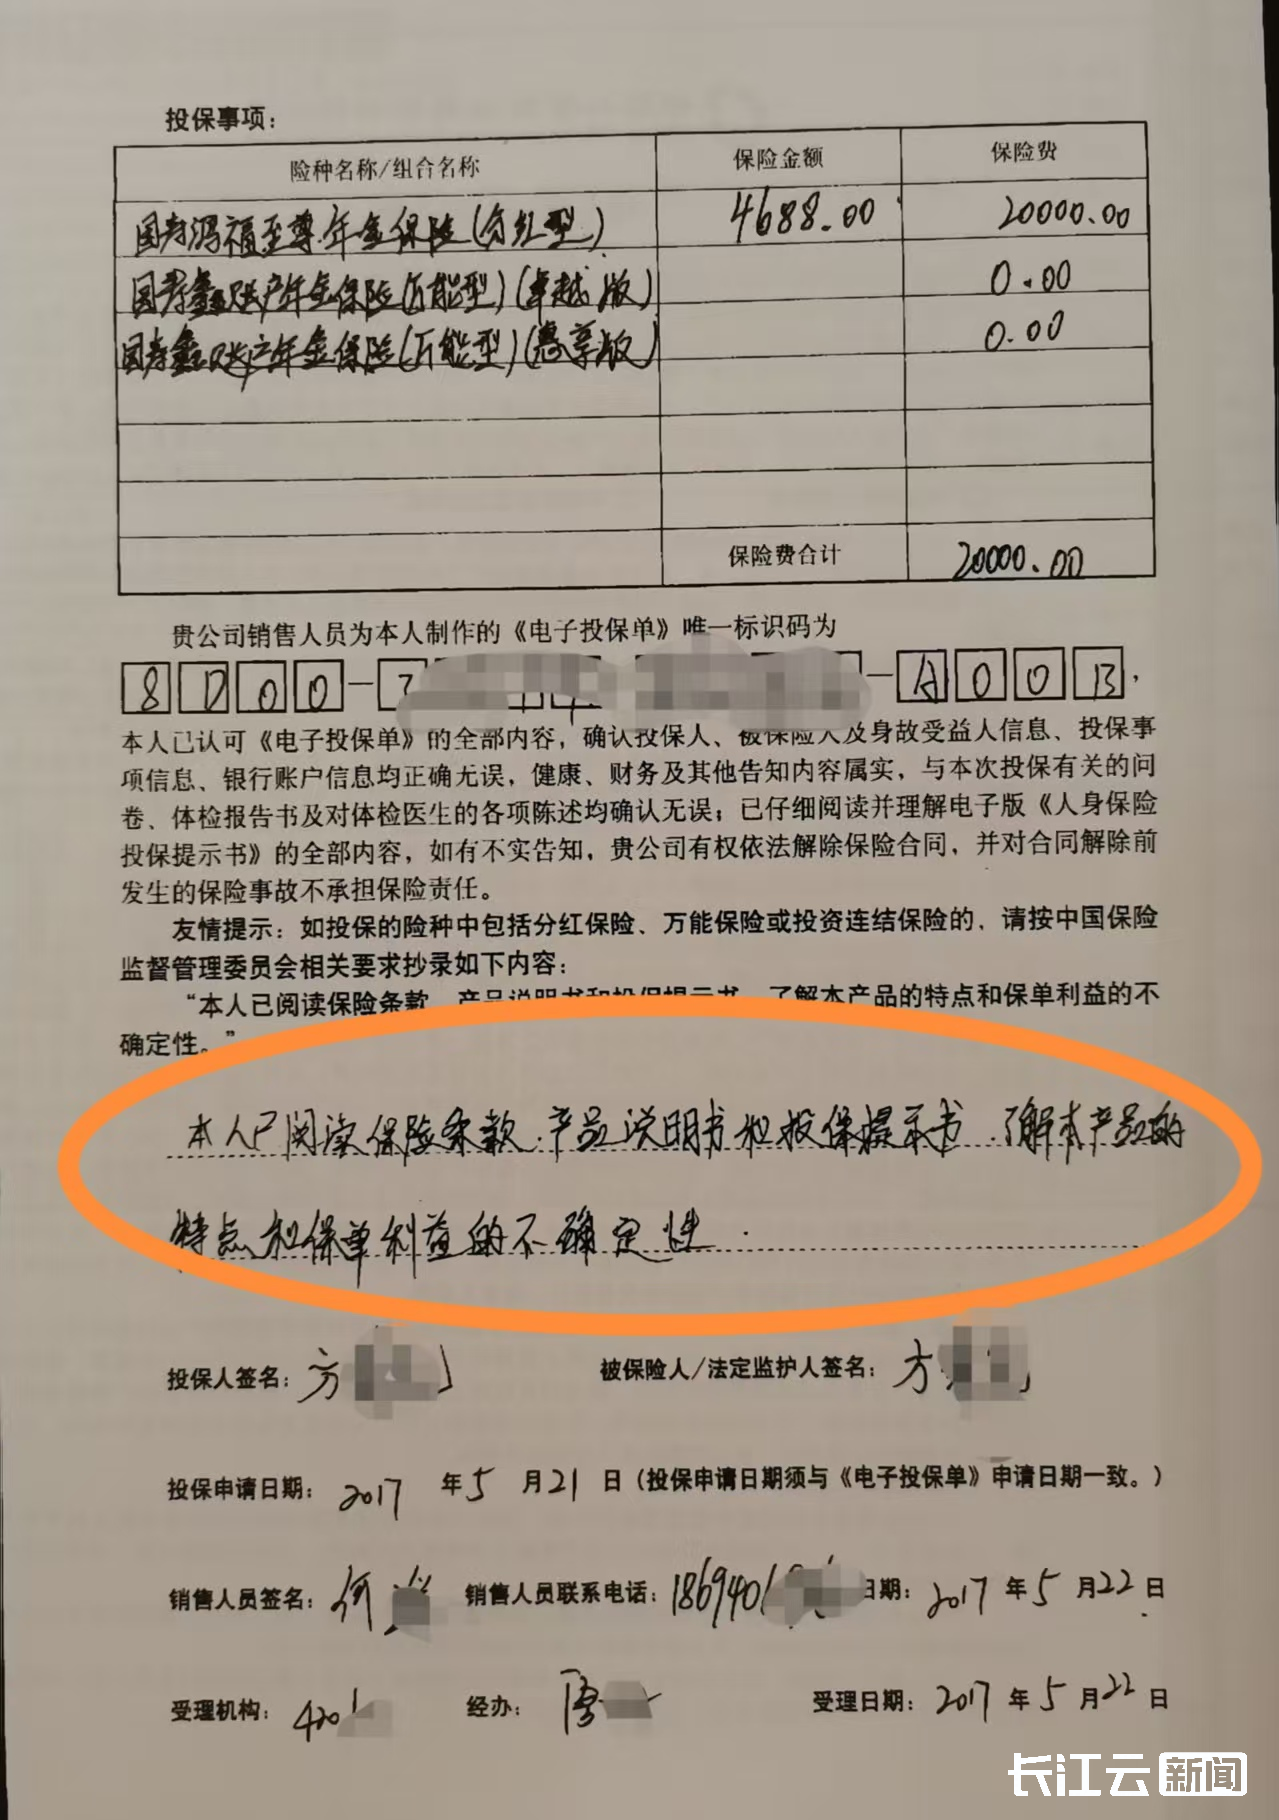 投保事项：
险种名称/组合名称 保险金额 保险费
国寿鸿福至尊年金保险(分红型) 4688.00 20000.00
国寿鑫账户年金保险(万能型)(卓越版) 0.00
国寿鑫账户年金保险(万能型)(惠享版) 0.00
保险费合计 20000.00
贵公司销售人员为本人制作的《电子投保单》唯一标识码为
8D00-7 -A00B，
本人已认可《电子投保单》的全部内容，确认投保人、被保险人及身故受益人信息、投保事
项信息、银行账户信息均正确无误，健康、财务及其他告知内容属实，与本次投保有关的问
卷、体检报告书及对体检医生的各项陈述均确认无误；已仔细阅读并理解电子版《人身保险
投保提示书》的全部内容，如有不实告知，贵公司有权依法解除保险合同，并对合同解除前
发生的保险事故不承担保险责任。
友情提示：如投保的险种中包括分红保险、万能保险或投资连结保险的，请按中国保险
监督管理委员会相关要求抄录如下内容：
“本人已阅读保险条款、产品说明书和投保提示书，了解本产品的特点和保单利益的不
确定性。”
本人已阅读保险条款、产品说明书和投保提示书，了解本产品的
特点和保单利益的不确定性.
投保人签名：方 被保险人/法定监护人签名：方
投保申请日期：2017年5月21日(投保申请日期须与《电子投保单》申请日期一致。)
销售人员签名：何 销售人员联系电话：1869401 日期：2017年5月22日
受理机构：420 经办：唐 受理日期：2017年5月22日
长江云新闻